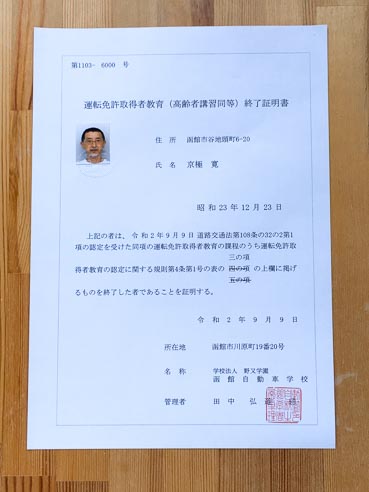 第1103- 6000 号
運転免許取得者教育(高齢者講習同等)終了証明書
住 所 函館市谷地頭町6-20
氏 名 京極 寛
昭和23年12月23日
上記の者は、令和2年9月9日道路交通法第108条の32の2第1
項の認定を受けた同項の運転免許取得者教育の課程のうち運転免許取
三の項
得者教育の認定に関する規則第4条第1号の表の 四の項 の上欄に掲げ
五の項
るものを終了した者であることを証明する。
令和2年9月9日
所在地 函館市川原町19番20号
名 称 学校法人 野又学園
函館自動車学校
管理者 田中弘